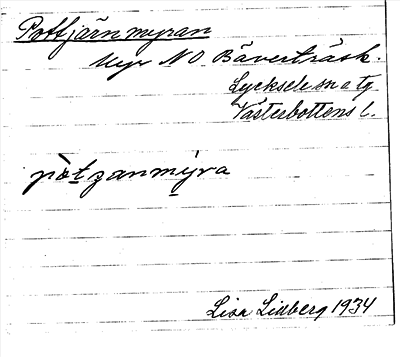 Pottjärnmyran
Myr NO Bäverträsk.
Lycksele sn o tg.
Västerbottens l.
pòtzanmýra
Lisa Lidberg 1934